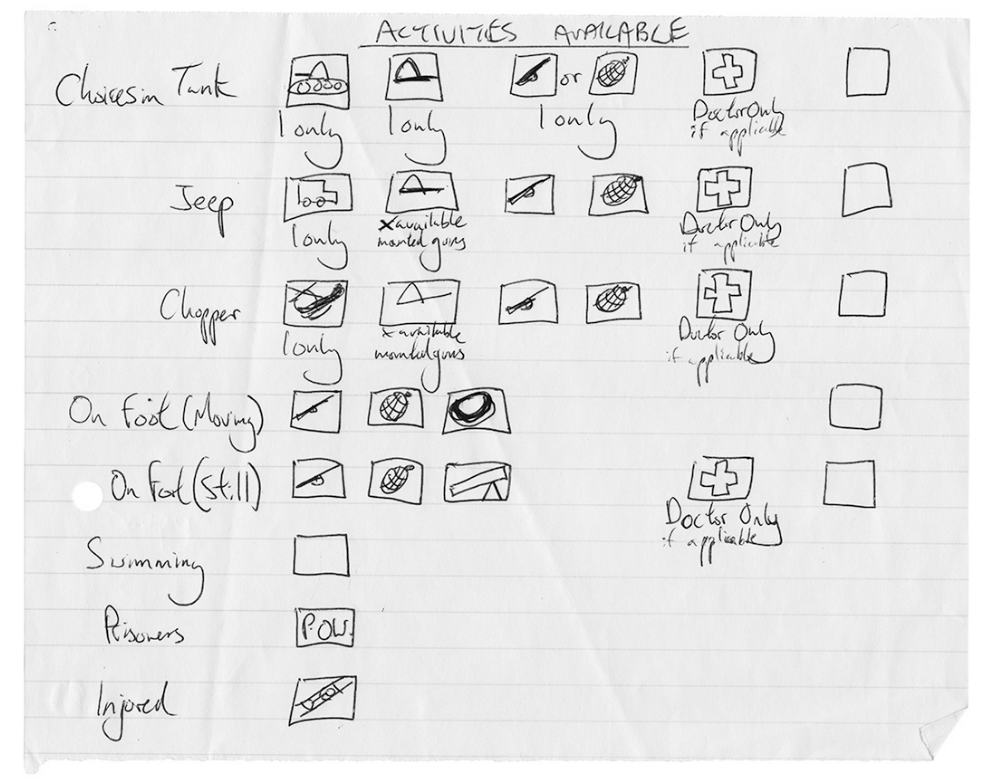 ACTIVITIES AVAILABLE
Choices in Tank
or
1 only 1 only 1 only Doctor Only
if applicable
Jeep
1 only x available Doctor Only
mounted guns if applicable
Chopper
1 only x available Doctor Only
mounted guns if applicable
On Foot (Moving)
On Foot (Still)
Doctor Only
if applicable
Swimming
Prisoners P.O.W.
Injured